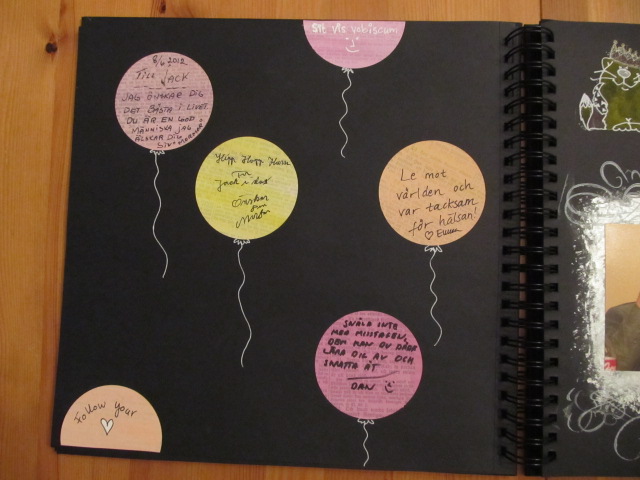 Sit vis vobiscum
8/6 2012
TILL JACK
JAG ÖNSKAR DIG
DET BÄSTA I LIVET.
DU ÄR EN GOD
MÄNNISKA JAG
ÄLSKAR DIG
Hipp Hopp Hurra
Till
Jack i dag
Önskar
Le mot
världen och
var tacksam
för hälsan!
♡ Emma
SNÅLA INTE
MED MISSTAGEN,
DEM KAN DU BÅDE
LÄRA DIG AV OCH
SKRATTA ÅT
DAN
Follow your